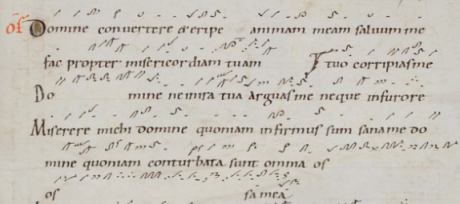 Of Domine convertere & eripe animam meam salvum me
fac propter misericordiam tuam
Do mine ne in ira tua arguas me neque in furore
tuo corripias me
Miserere michi domine quoniam infirmus sum sana me do
mine quoniam conturbata sunt omnia os
os sa mea